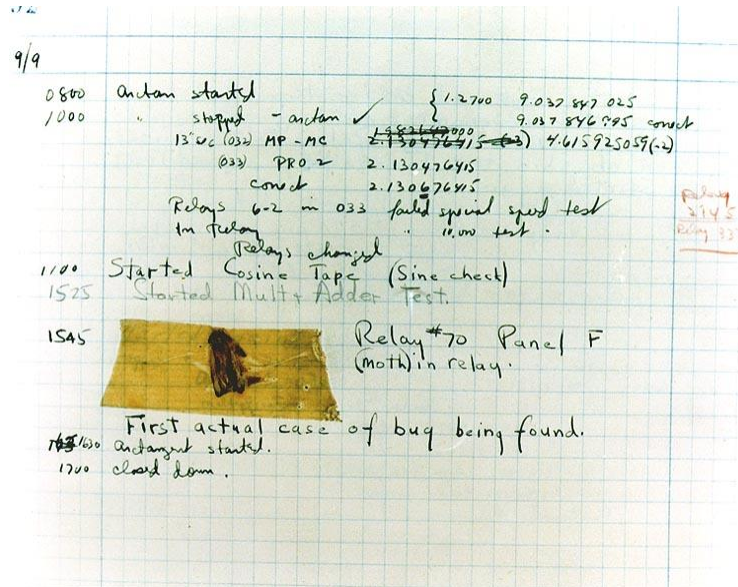 9/9
0800 arctan started { 1.2700 9.037 847 025
1000 " stopped - arctan ✓ 9.037 846 995 correct
13" sec (032) MP - MC 1.982647000 2.130476415 (-3) 4.615925059(-2)
(033) PRO 2 2.130476415
correct 2.130676415
Relays 6-2 in 033 failed special speed test
In relay " 10.000 test .
Relays changed
1100 Started Cosine Tape (Sine check)
1525 Started Mult+ Adder Test.
1545 Relay #70 Panel F
(moth) in relay.
First actual case of bug being found.
1630 arctangent started.
1700 closed down .
Relay
Relay